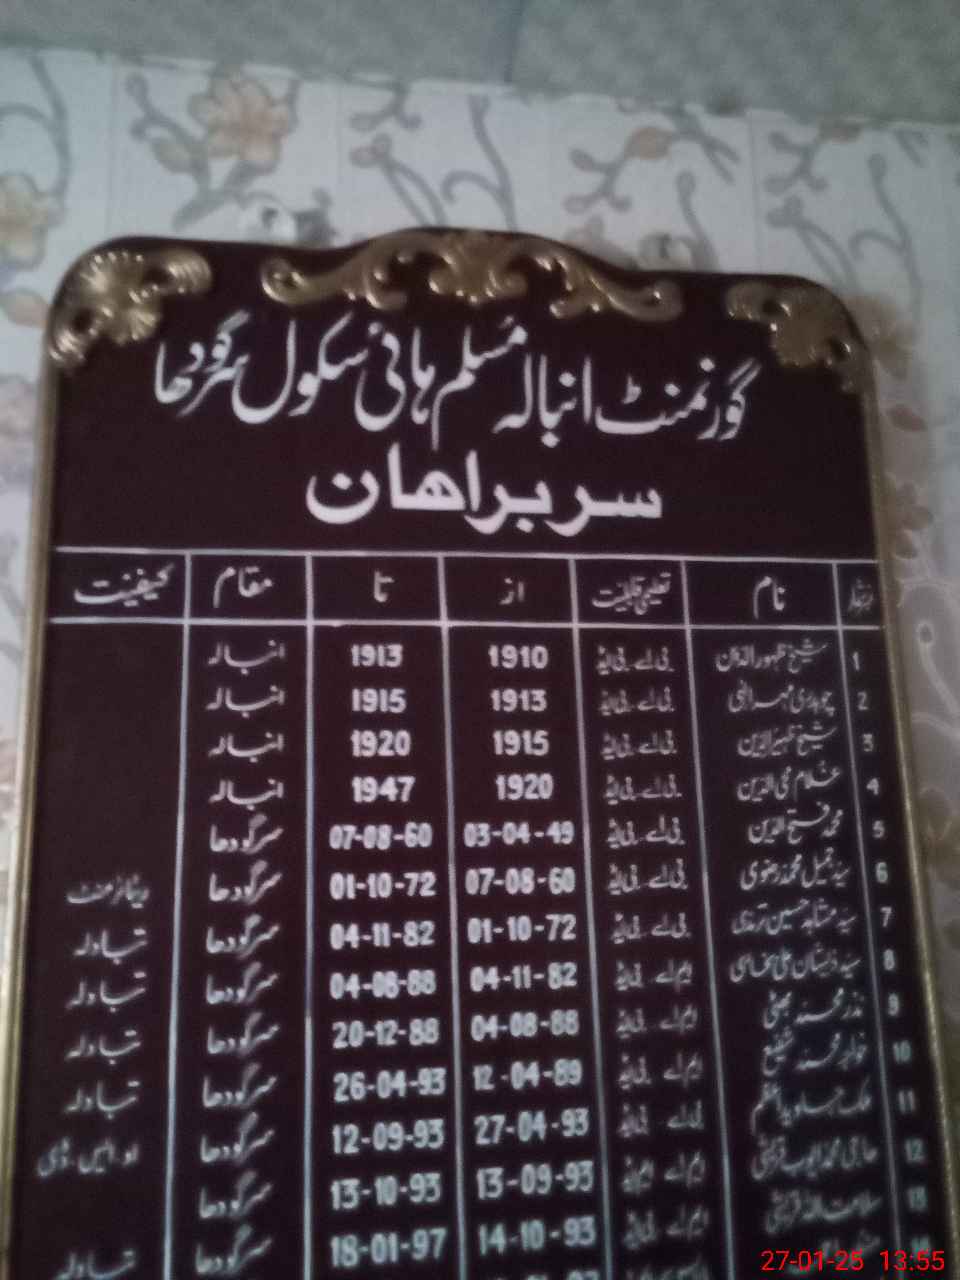 گورنمنٹ انبالہ مسلم ہائی سکول سرگودھا
سربراھان
نمبرشمار نام تعلیمی قابلیت از تا مقام کیفیت
1 شیخ ظہورالدین بی اے۔ بی ایڈ 1910 1913 انبالہ
2 چوہدری مہر الٰہی بی اے۔ بی ایڈ 1913 1915 انبالہ
3 شیخ ظہیرالدین بی اے۔ بی ایڈ 1915 1920 انبالہ
4 غلام محی الدین بی اے۔ بی ایڈ 1920 1947 انبالہ
5 محمد فتح الدین بی اے۔ بی ایڈ 03-04-49 07-08-60 سرگودھا
6 سید جمیل محمد رضوی بی اے۔ بی ایڈ 07-08-60 01-10-72 سرگودھا ریٹائرمنٹ
7 سید مشاہد حسین ترمذی بی اے۔ بی ایڈ 01-10-72 04-11-82 سرگودھا تبادلہ
8 سید ذیشان علی بی ایڈ 04-11-82 04-08-88 سرگودھا تبادلہ
9 نذر محمد بھٹی ایم اے۔ بی ایڈ 04-08-88 20-12-88 سرگودھا تبادلہ
10 خواجہ محمد شفیع ایم اے۔ بی ایڈ 12-04-89 26-04-93 سرگودھا تبادلہ
11 ملک جاوید اعظم بی اے۔ بی ایڈ 27-04-93 12-09-93 سرگودھا او۔ایس۔ڈی
12 حاجی محمد ایوب قریشی ایم اے۔ ایم ایڈ 13-09-93 13-10-93 سرگودھا
13 سلامت اللہ قریشی ایم اے۔ بی ایڈ 14-10-93 18-01-97 سرگودھا تبادلہ
14
27-01-25 13:55